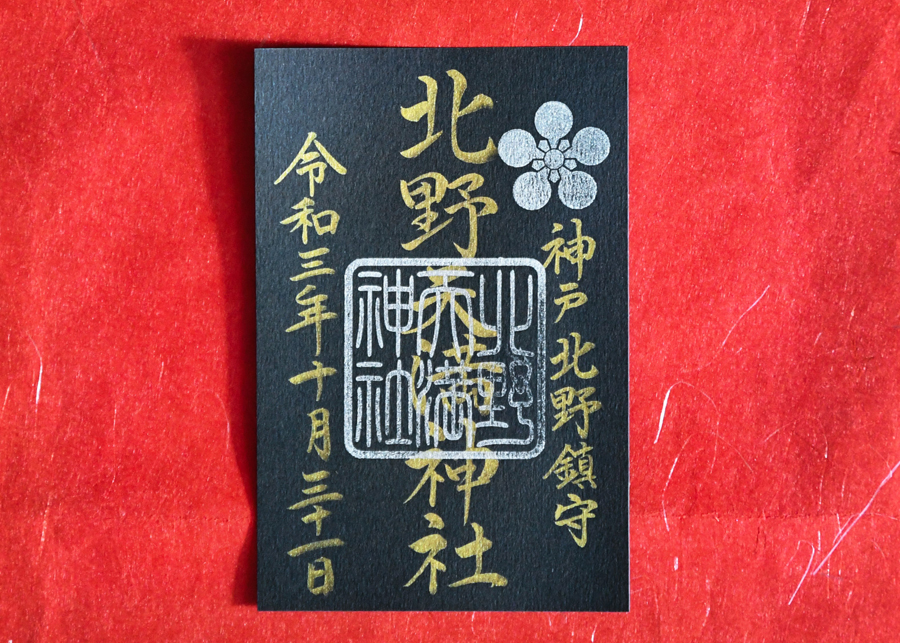 神戸北野鎮守
北野天満神社
北野
天満
神社
令和三年十月三十一日